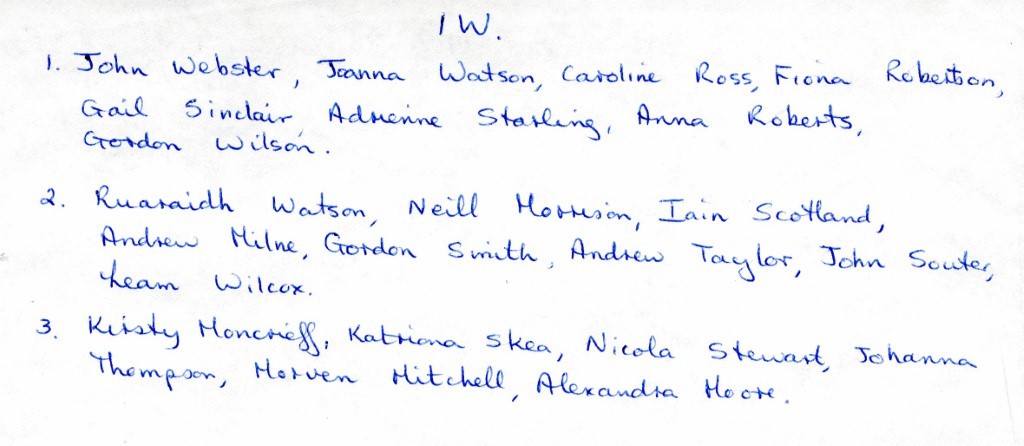 1W.
1. John Webster, Joanna Watson, Caroline Ross, Fiona Robertson,
Gail Sinclair, Adrienne Starling, Anna Roberts,
Gordon Wilson.
2. Ruaraidh Watson, Neill Morrison, Iain Scotland,
Andrew Milne, Gordon Smith, Andrew Taylor, John Souter,
Leam Wilcox.
3. Kirsty Moncrieff, Katriona Skea, Nicola Stewart, Johanna
Thompson, Morven Mitchell, Alexandra Moore.